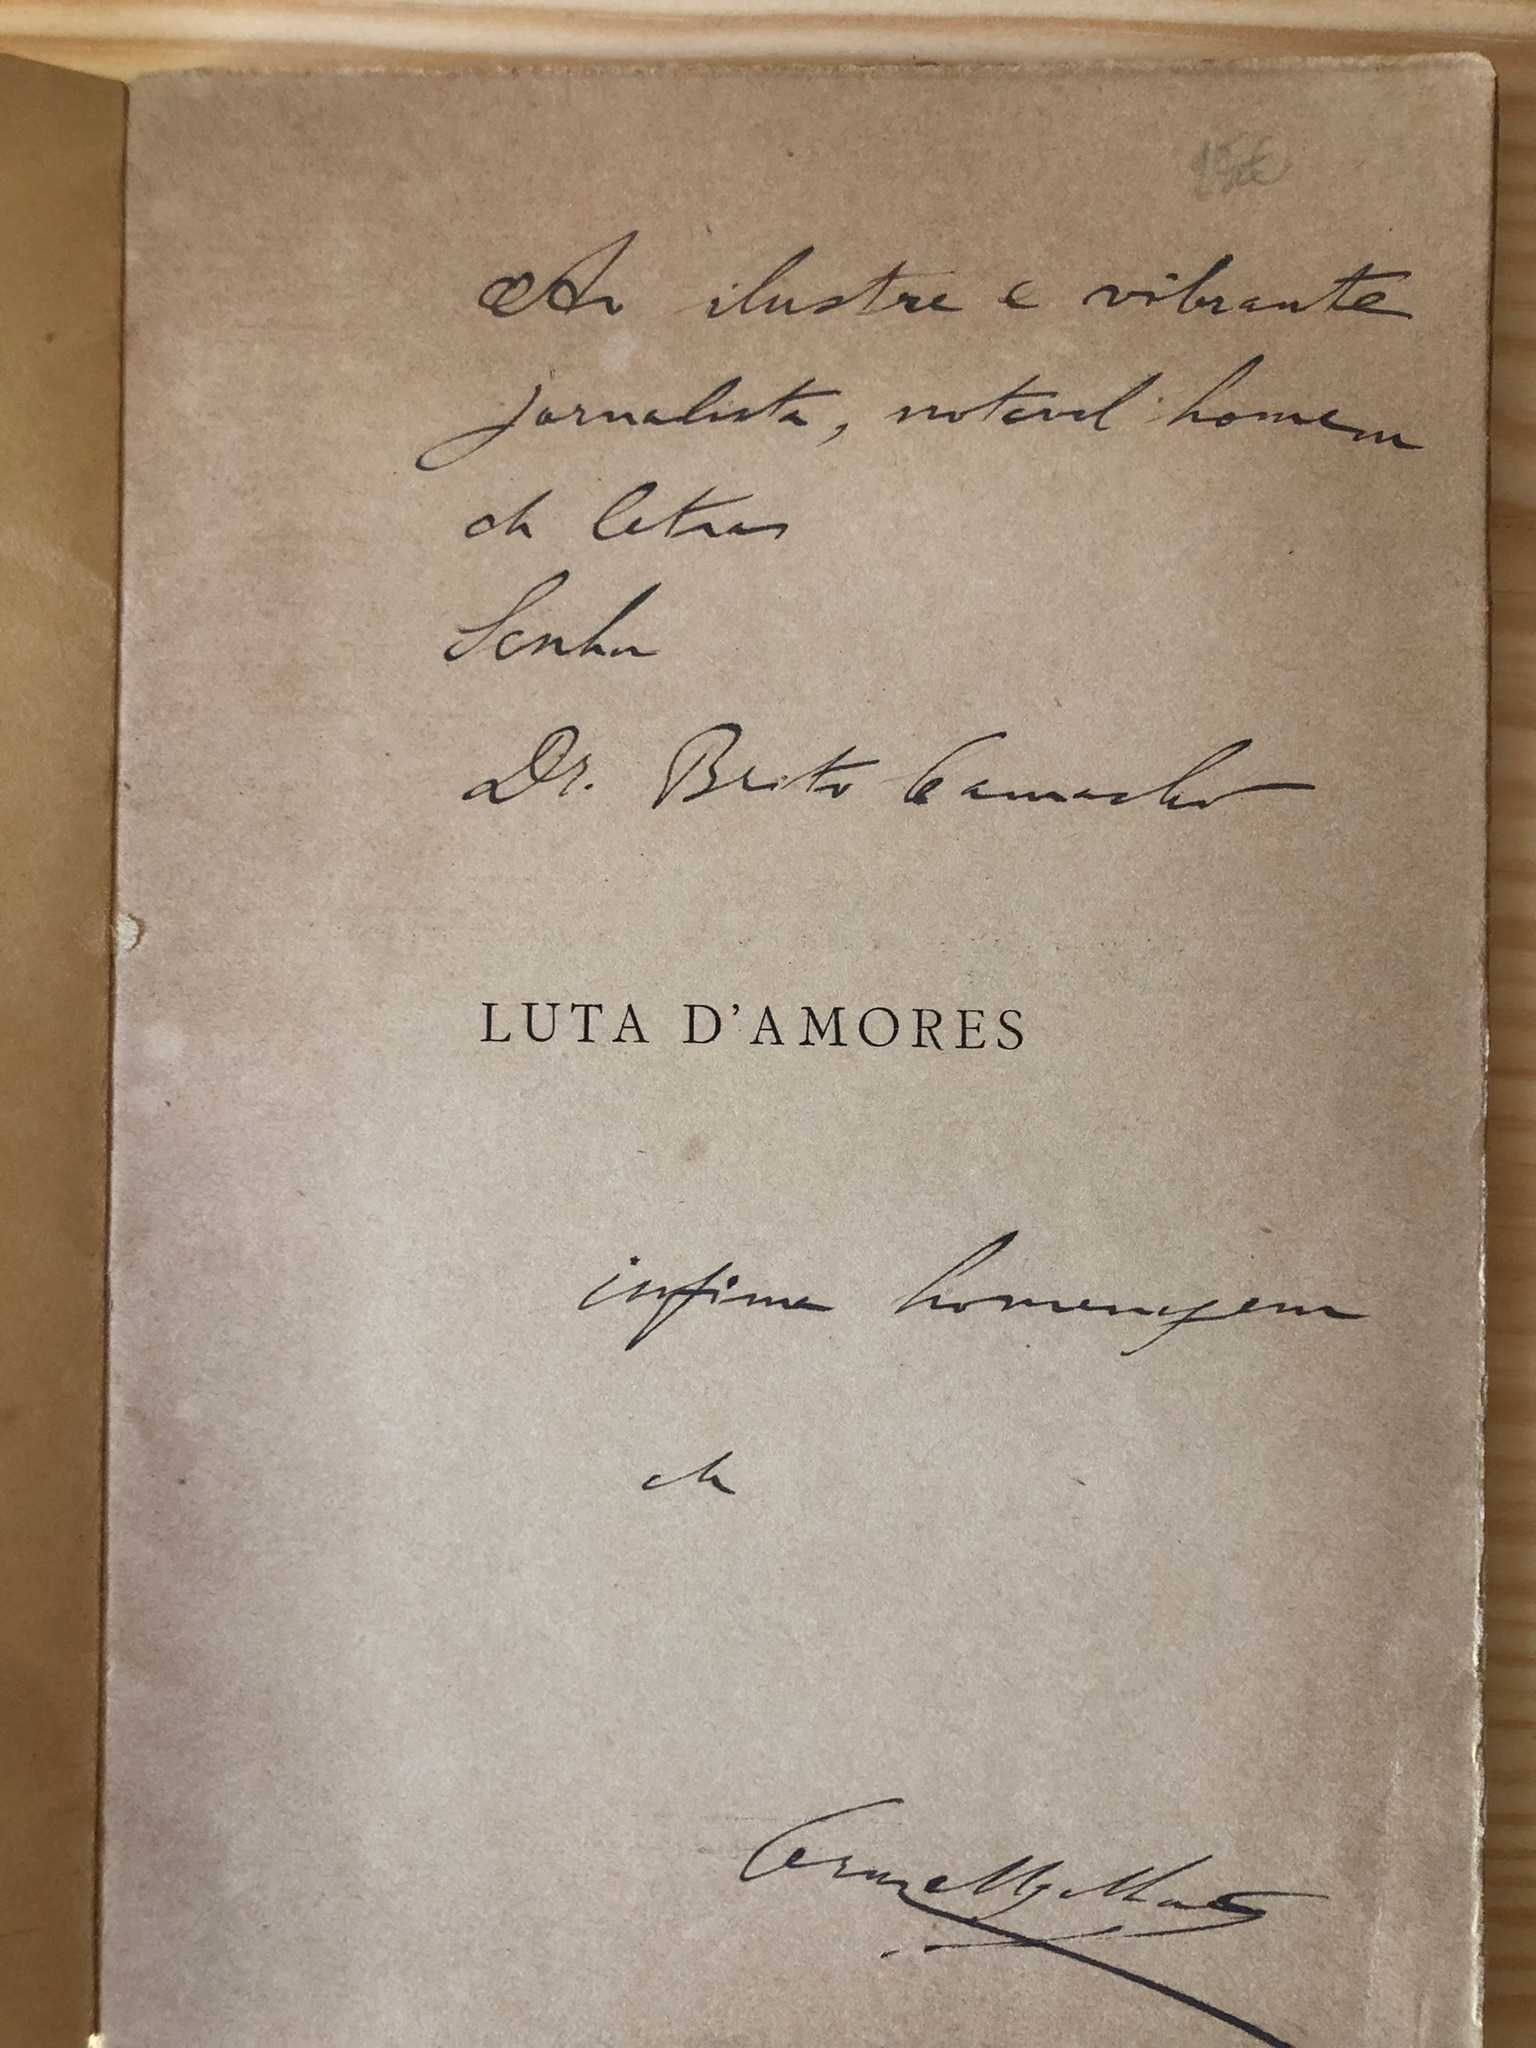 Ao ilustre e vibrante
jornalista, notavel homem
de letras
Senhor
Dr. Brito Camacho
LUTA D'AMORES
infima homenagem
de
Cruz Magalhães